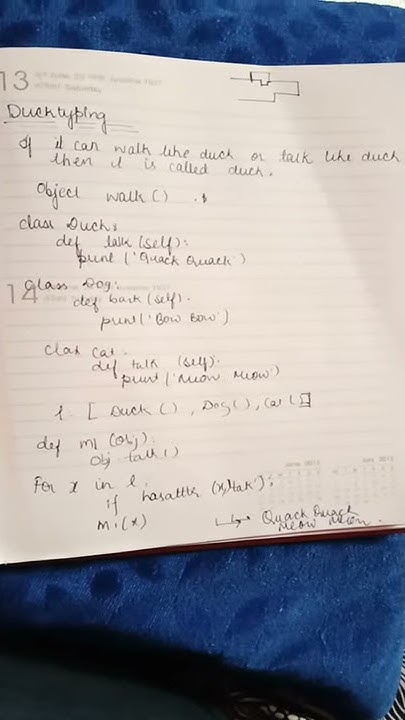 13
Ducktyping
If it can walk like duck or talk like duck
then it is called duck.
Object walk()
class Duck:
def talk (self):
print ('Quack Quack')
14
class Dog:
def bark (self).
print ('Bow Bow')
class Cat.
def talk (self).
print ('Meow Meow')
l. [ Duck () , Dog() , Cat ()]
def m1 (obj).
Obj. talk()
For x in l.
if hasattr (x, 'talk'):
m1(x)
Quack Quack
Meow Meow.
June 2013